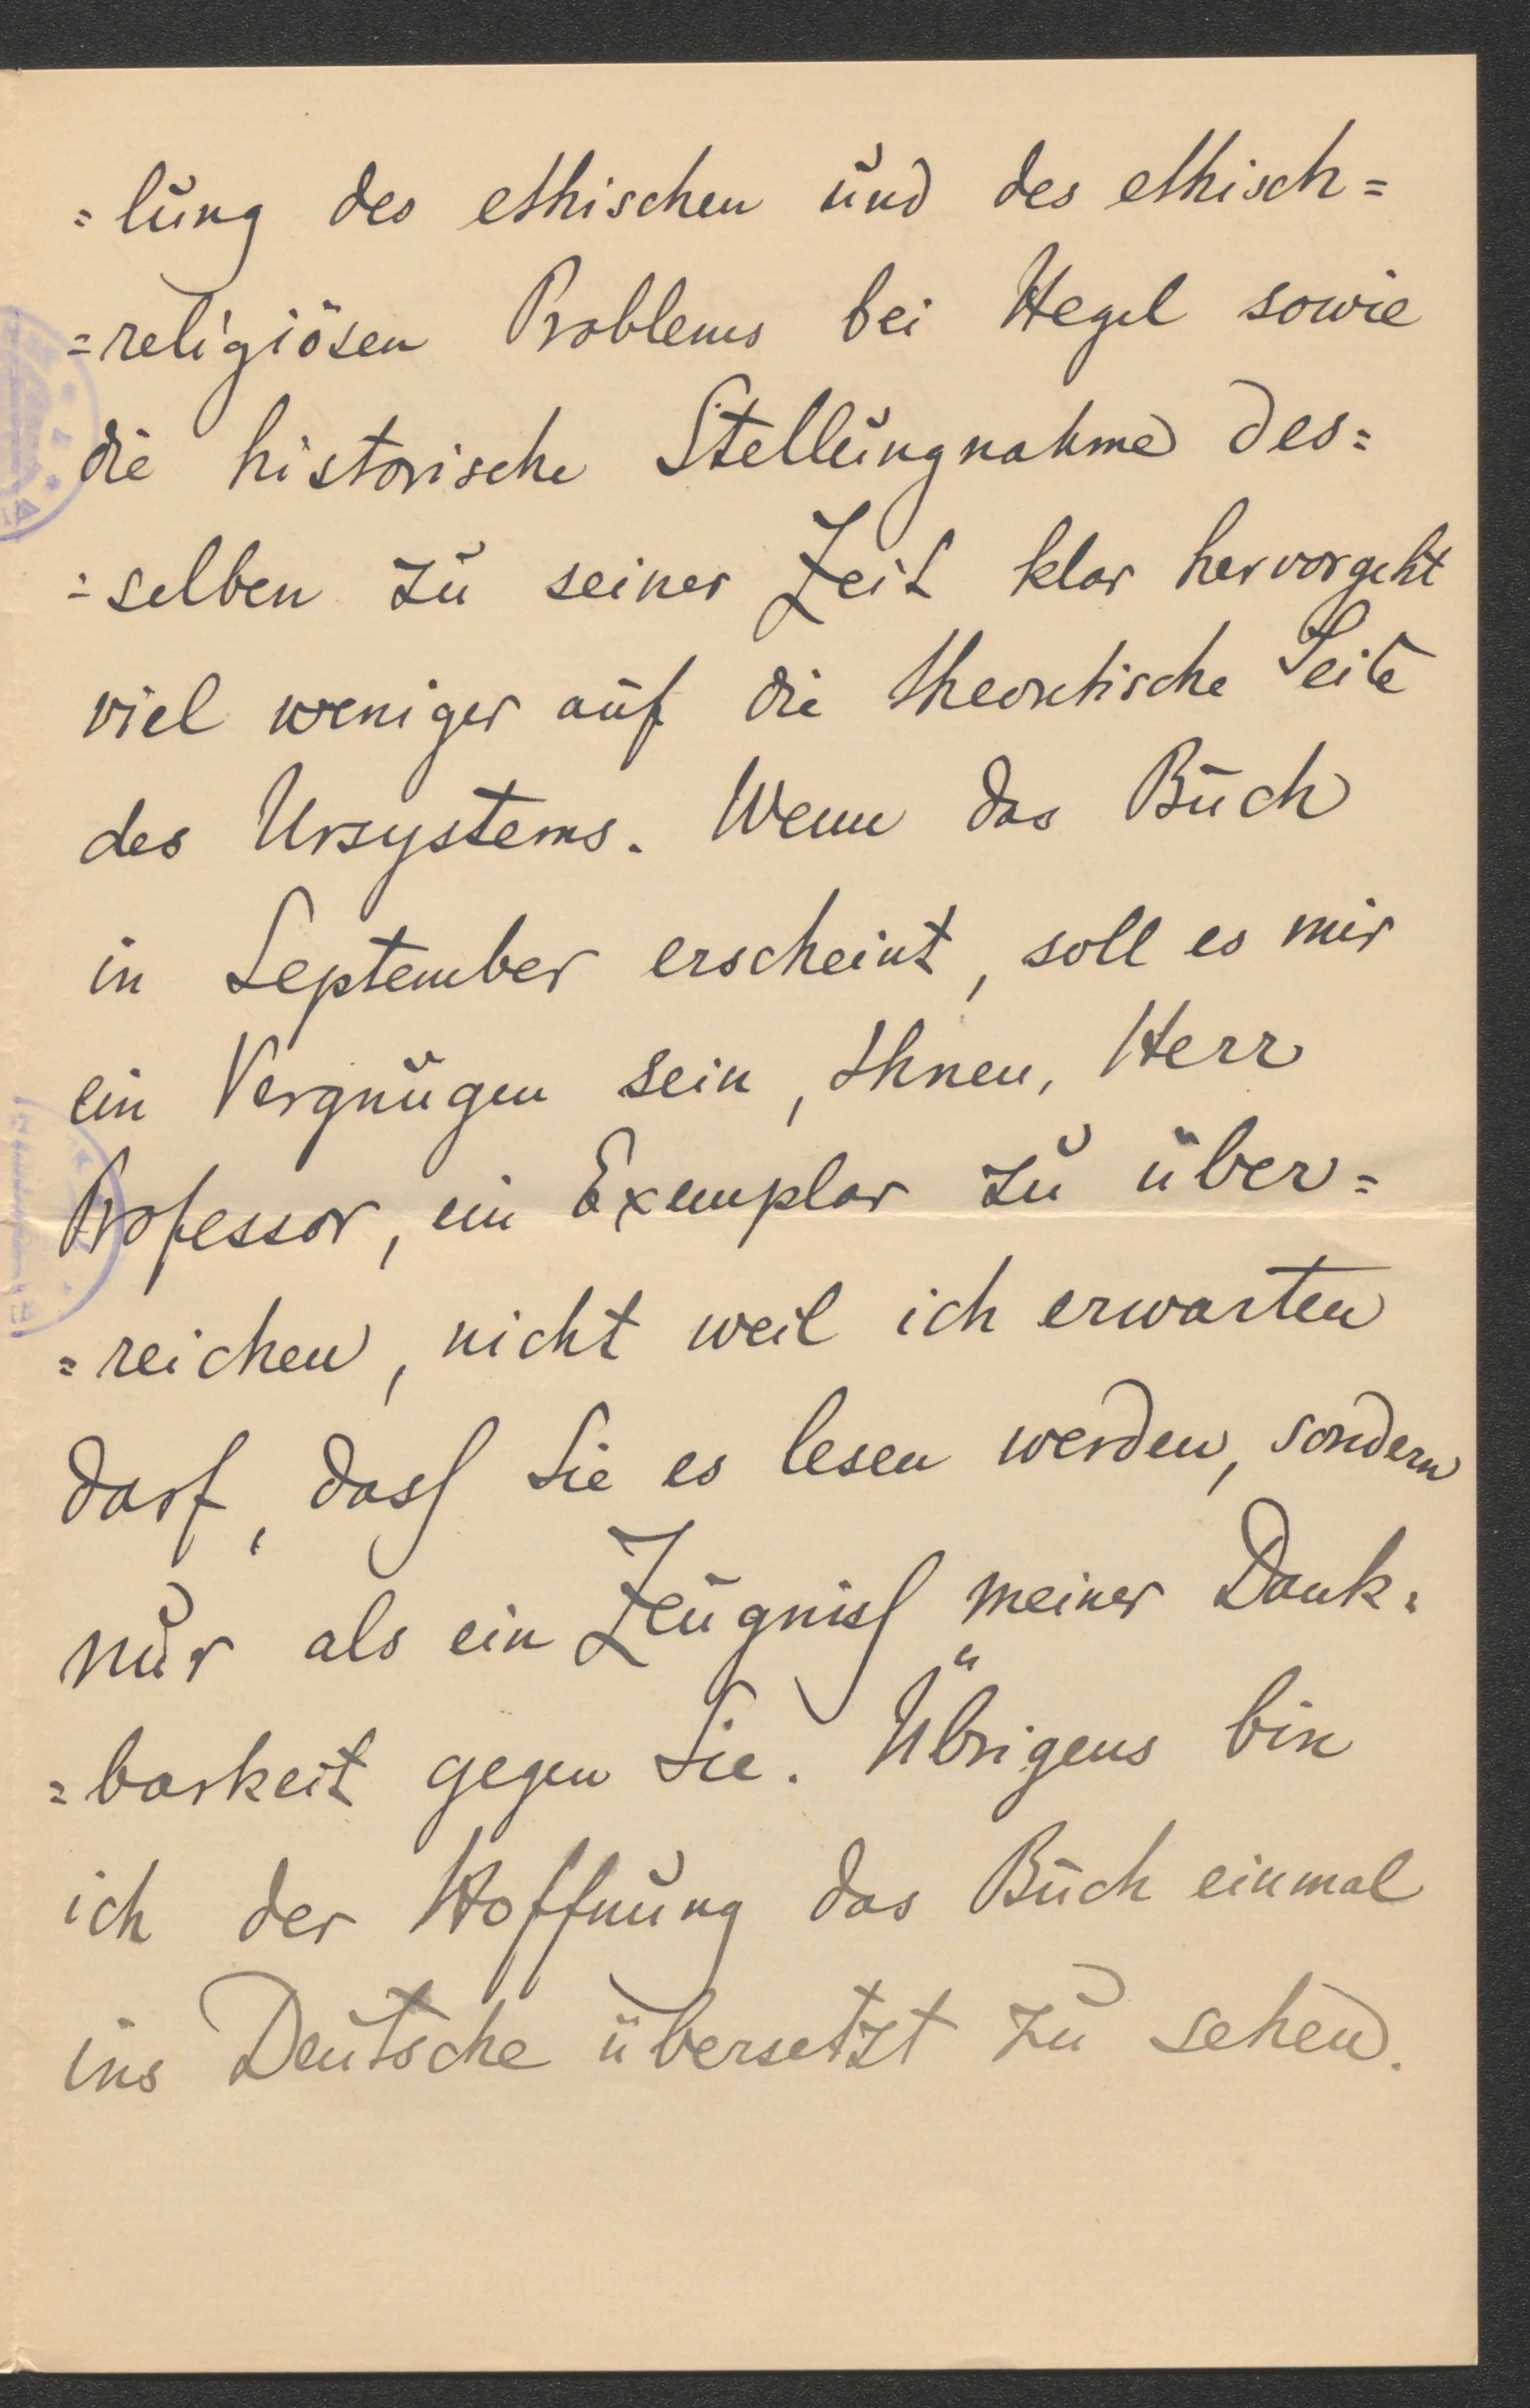 =lung des ethischen und des ethisch=
=religiösen Problems bei Hegel sowie
die historische Stellungnahme des=
=selben zu seiner Zeit klar hervorgeht
viel weniger auf die theoretische Seite
des Ursystems. Wenn das Buch
in September erscheint, soll es mir
ein Vergnügen sein, Ihnen, Herr
Professor, ein Exemplar zu über=
=reichen, nicht weil ich erwarten
darf, dass Sie es lesen werden, sondern
nur als ein Zeugniss meiner Dank=
=barkeit gegen Sie. Übrigens bin
ich der Hoffnung das Buch einmal
ins Deutsche übersetzt zu sehen.